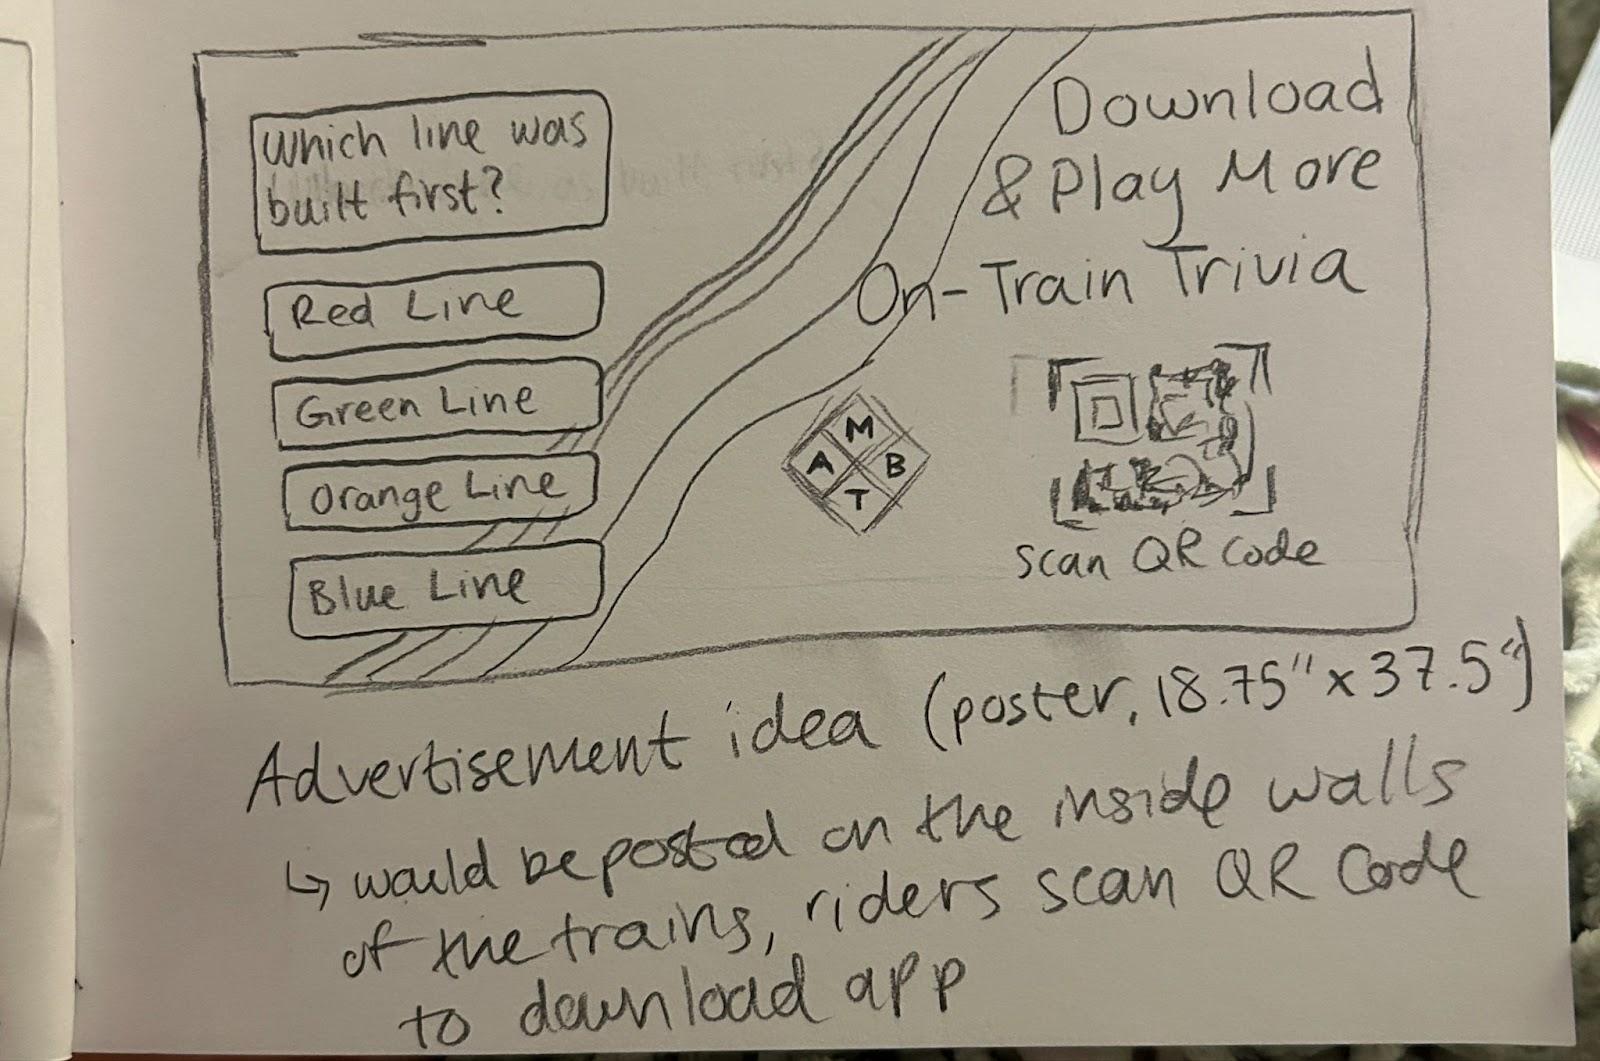 Which line was
built first?
Red Line
Green Line
Orange Line
Blue Line
Download
& Play More
On-Train Trivia
M
A B
T
scan QR code
Advertisement idea (poster, 18.75" x 37.5")
↳ would be posted on the inside walls
of the trains, riders scan QR Code
to download app